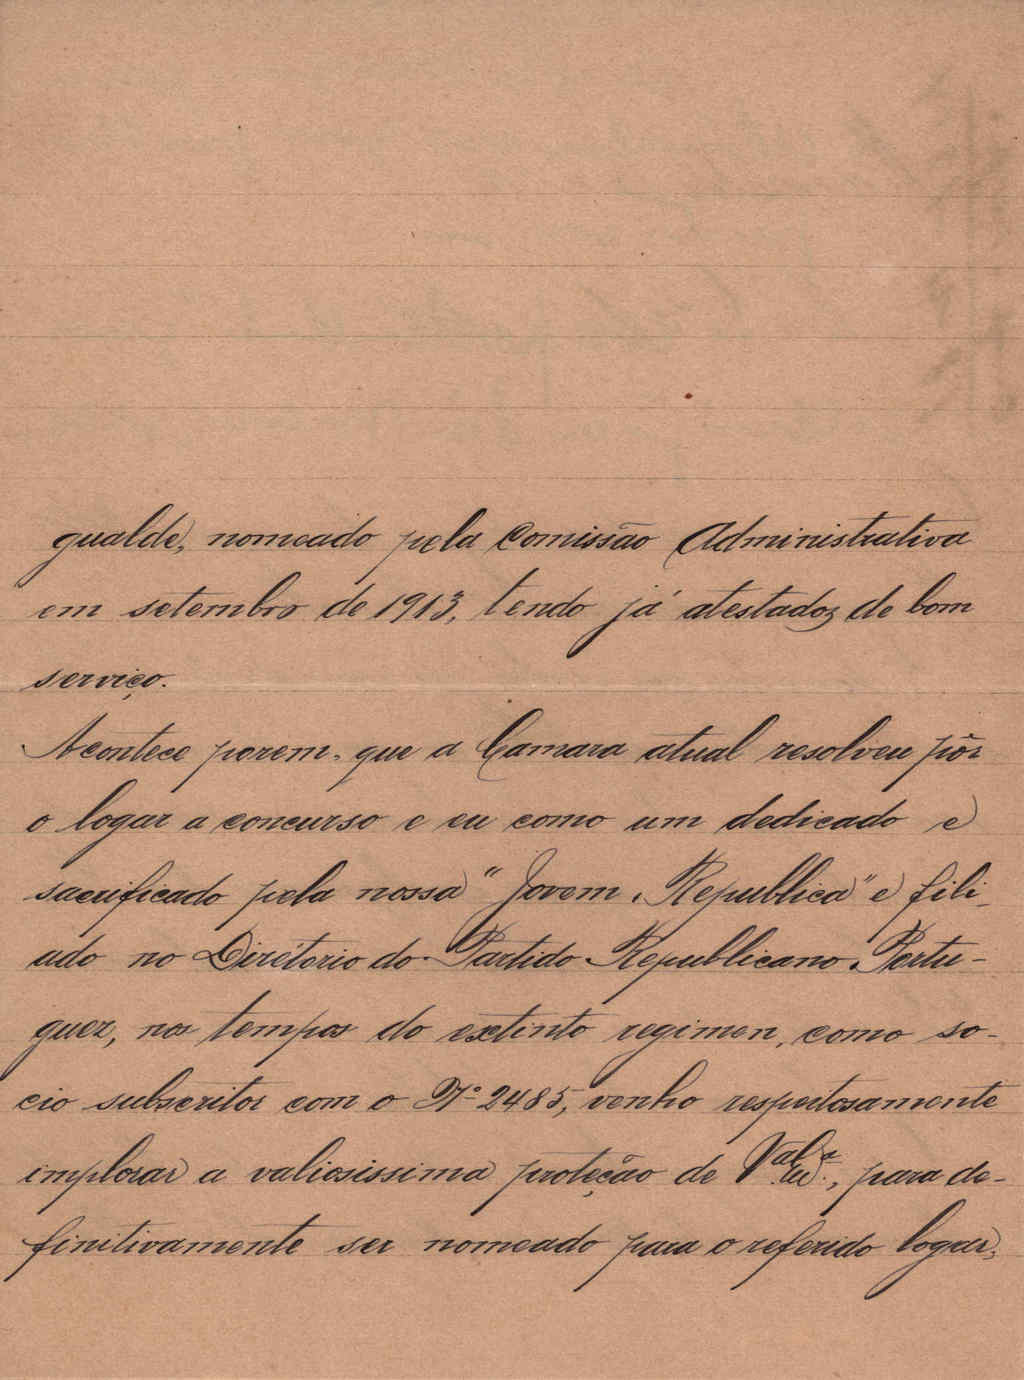 gualde, nomeado pela Comissão Administrativa
em setembro de 1913, tendo já atestados de bom
serviço.
Acontece porem, que a Camara atual resolveu pôr
o logar a concurso e eu como um dedicado e
sacrificado pela nossa "Jovem Republica" e fili-
ado no Diretorio do Partido Republicano Portu-
guez, nos tempos do extinto regimen, como so-
cio subscritor com o Nº 2485, venho respeitosamente
implorar a valiosissima proteção de para de-
finitivamente ser nomeado para o referido logar,